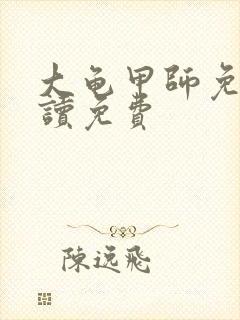 大龟甲師免
讀免費
陳逸飛